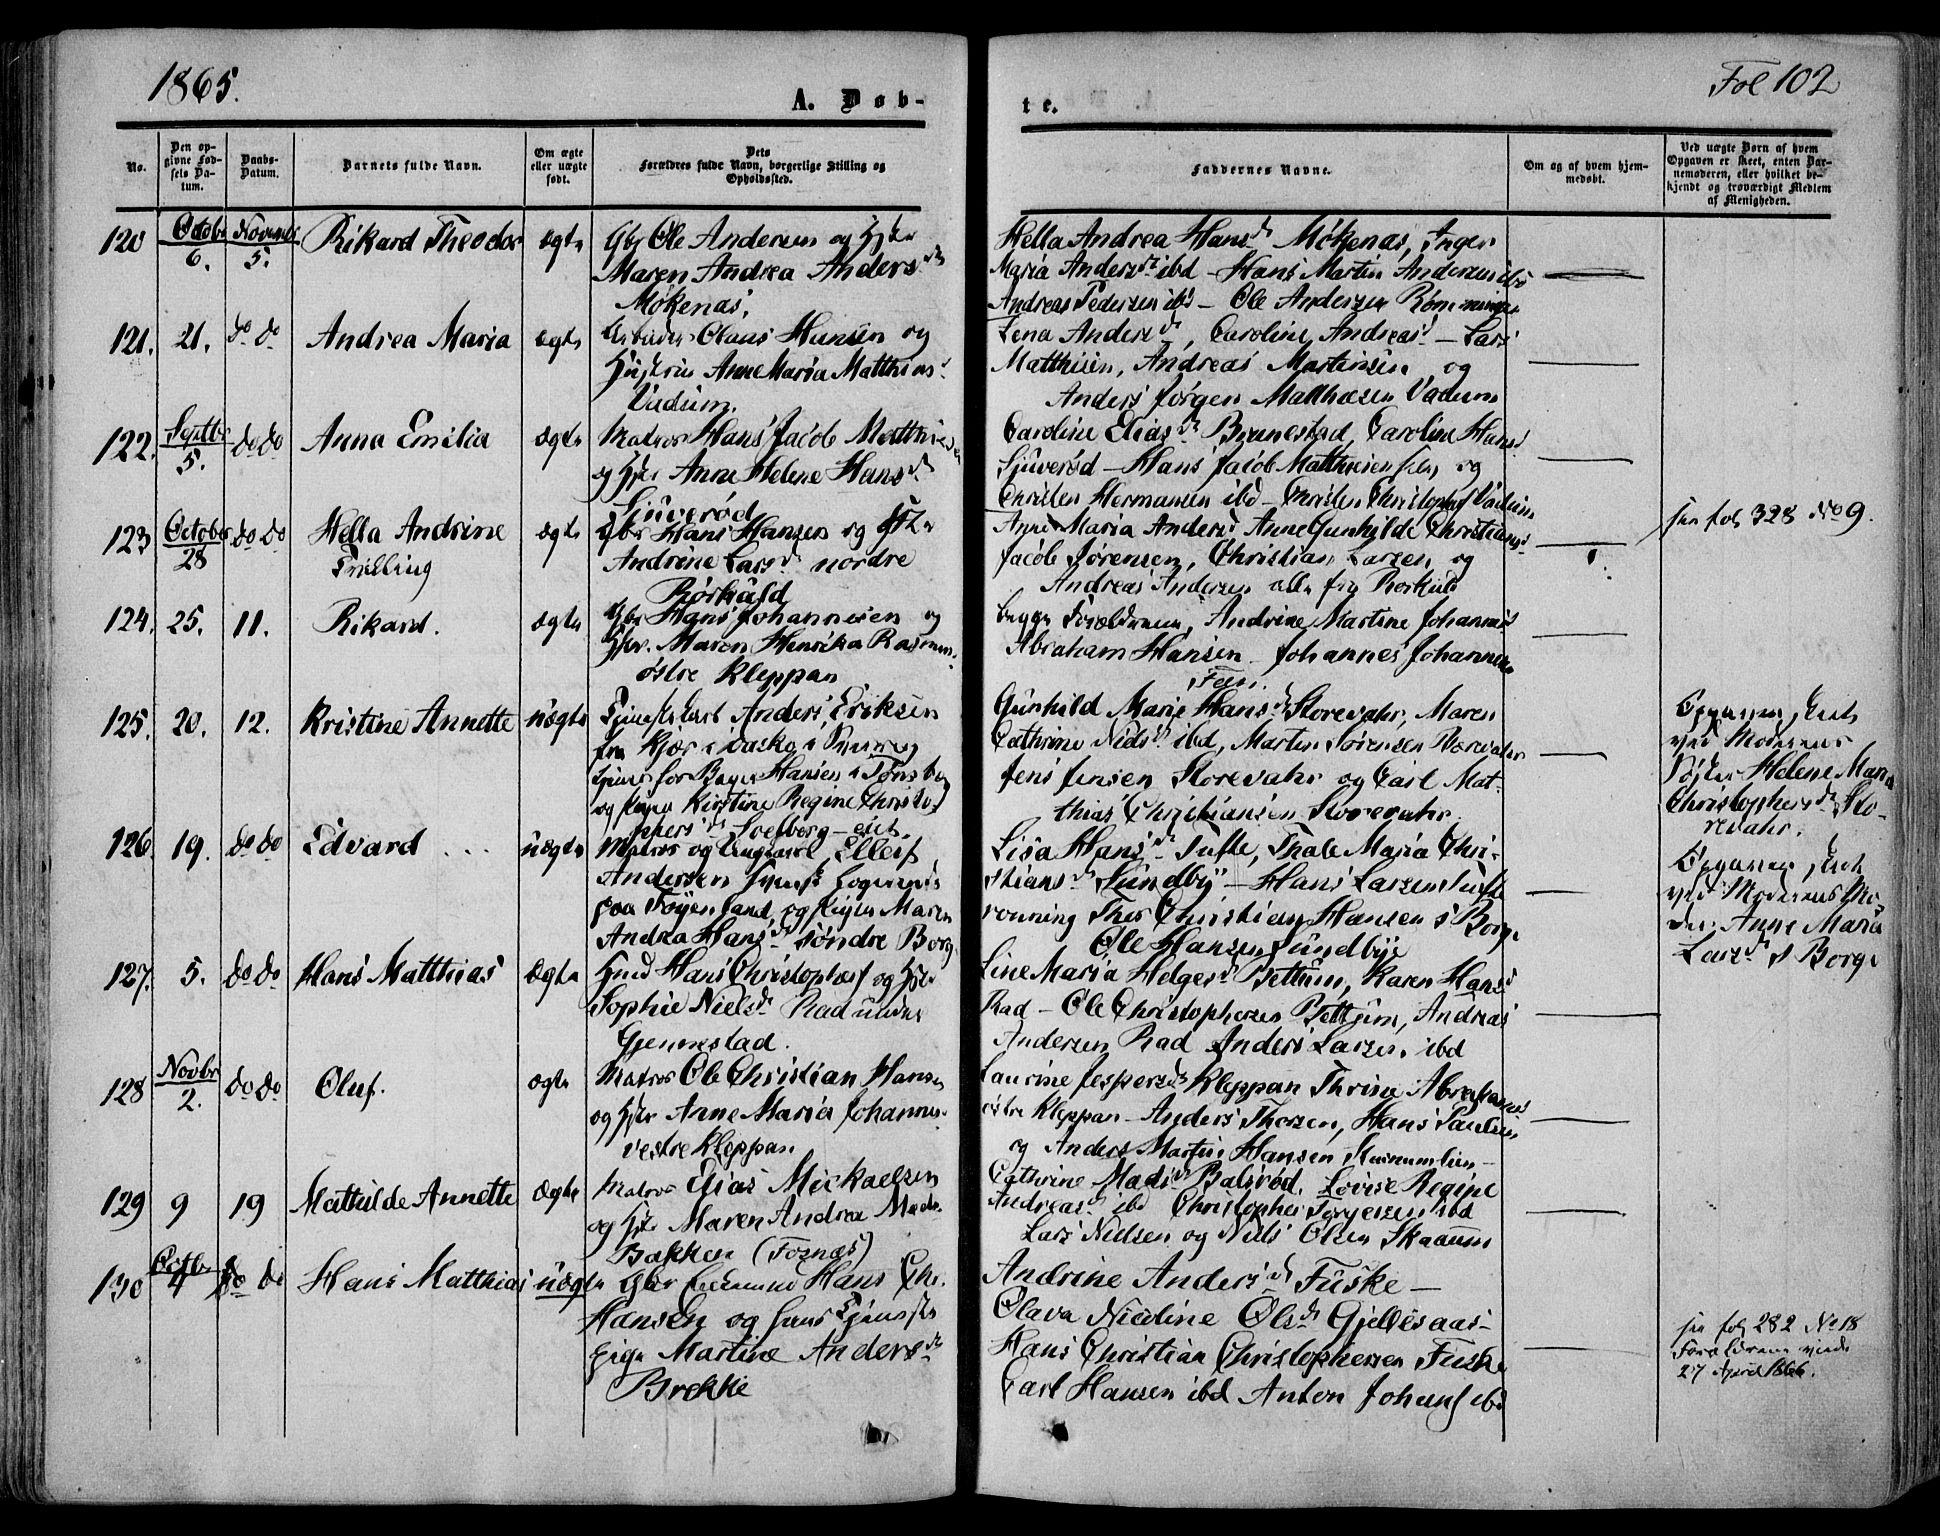 1865.
Fol 102
A. Døb-
te.
No.
Den op-
givne Fød-
sels Da-
tum.
Daabs-
Datum.
Barnets fulde Navn.
Om ægte
eller uægte
født.
Dets
Forældres fulde Navn, borgerlige Stilling og
Opholdssted.
Faddernes Navne.
Om og af hvem hjem-
medøbt.
Ved uægte Børn af hvem
Opgaven er skeet, enten Bar-
nemoderen, eller hvilket be-
kjendt og troværdigt Medlem
af Menigheden.
120 Octobr 6. Novembr 5. Rikard Theodor ægte
Gbr Ole Andersen og Hstr
Maren Andrea Andersd
Møkenas.
Hella Andrea Hansd Møkenas, Inger
Maria Andersd ibd - Hans Martin Andersen ibd
Andreas Pedersen ibd - Ole Andersen
121. 21. do do Andrea Maria ægte
Claus Hansen og
Hustru Anne Maria Matthiasd
Vadum.
Lena Andersd, Caroline Andreasd - Lars
Matthisen, Andreas Martinsen og
Anders Jørgen Matthæsen Vadum
122. Septbr 5. do do Anna Emilia ægte
Matros Hans Jacob Matthiesen
og Hstr Anne Helene Hansd
Sjuverød
Caroline Eliasd Brunestad, Caroline Hansd
Sjuverød - Hans Jacob Matthiesen og
Christen Hermansen ibd - Christen Christophers Vadum
123 October 28 do do Hella Andrine ægte
Trilling
Gbr Hans Hansen og Hstr
Andrine Larsd nordre
Rørkuld
Anne Maria Andersd Anne Gunhilde Christiansd
Jacob Sørensen, Christian Larsen og
Andreas Andersen alle fra Rørkuld
see fol 328 No 9.
124. 25. 11. Rikard. ægte
Gbr Hans Johannesen og
Hstr. Maren Henrika Rasmus.
østre Kleppan
begge Forældrene, Andrine Martine Johannisd
Abraham Hansen - Johannes Johannesen
125. 20. 12. Kristine Annette uægte
Tjenestekarl Anders Eriksen
fra Kjær i
Hansen i Tønsberg
og Pigen Kirstine Regine Christo-
phersd Solberg
Gunhild Marie Hansd Storevahr, Maren
Cathrine Nielsd ibd, Martin Sørensen
Jens Jensen Storevahr og Carl Mat-
thias Christiansen Storevahr.
Opgaven skeet
ved Moderens
Søster Helene Maria
Christophersd Sto-
revahr.
126 19. do do Edvard uægte
Matros og Ungkarl Ellef
Andersen Svensk
paa Føyenland, og Pigen Maren
Andrea Hansd søndre Borge
Lisa Hansd Tufte, Thale Maria Chri-
stiansd Sundby - Hans Larsen Tufte
Thor Christian Hansen s Borge
Ole Hansen Sundbye
Opgaven skeet
ved Moderens Mo-
der Anne Maria
Larsd s Borge
127. 5. do do Hans Matthias ægte
Hmd Hans Christophers og Hstr
Sophie Nielsd Rad under
Gjennestad.
Line Maria Helgesd Bettum, Karen Hansd
Rad - Ole Christophersen Bettum, Andreas
Andersen Rad Anders Larsen ibd
128 Novbr 2. do do Oluf. ægte
Matros Ole Christian Hansen
og Hstr Anne Maria Johannes.
vestre Kleppan
Laurine Jespersd Kleppan Thrine Abrahamsd
østre Kleppan - Anders Thorsen, Hans Paulsen
og Anders Martin Hansen
129 9 19 Mathilde Annette ægte
Matros Elias Mickaelsen
og Hstr Maren Andrea Mads.
Bakken (Foznæs)
Cathrine Madsd Balsrød, Lovise Regine
Andreasd ibd Christopher Torgersen ibd
Lars Nielsen og Niels Olsen Skaaum
130 Octbr 4 do do Hans Matthias uægte
Gbr Hans Chr.
Hansen og hans Tjeneste
pige Martine Andersd
Brekke
Andrine Andersd Fuske -
Olava Nicoline Olsd Gjellesaas -
Hans Christian Christophersen Fuske
Carl Hansen ibd Anton Johans ibd
see fol 282 No 18
Forældrene viede
27 April 1866.